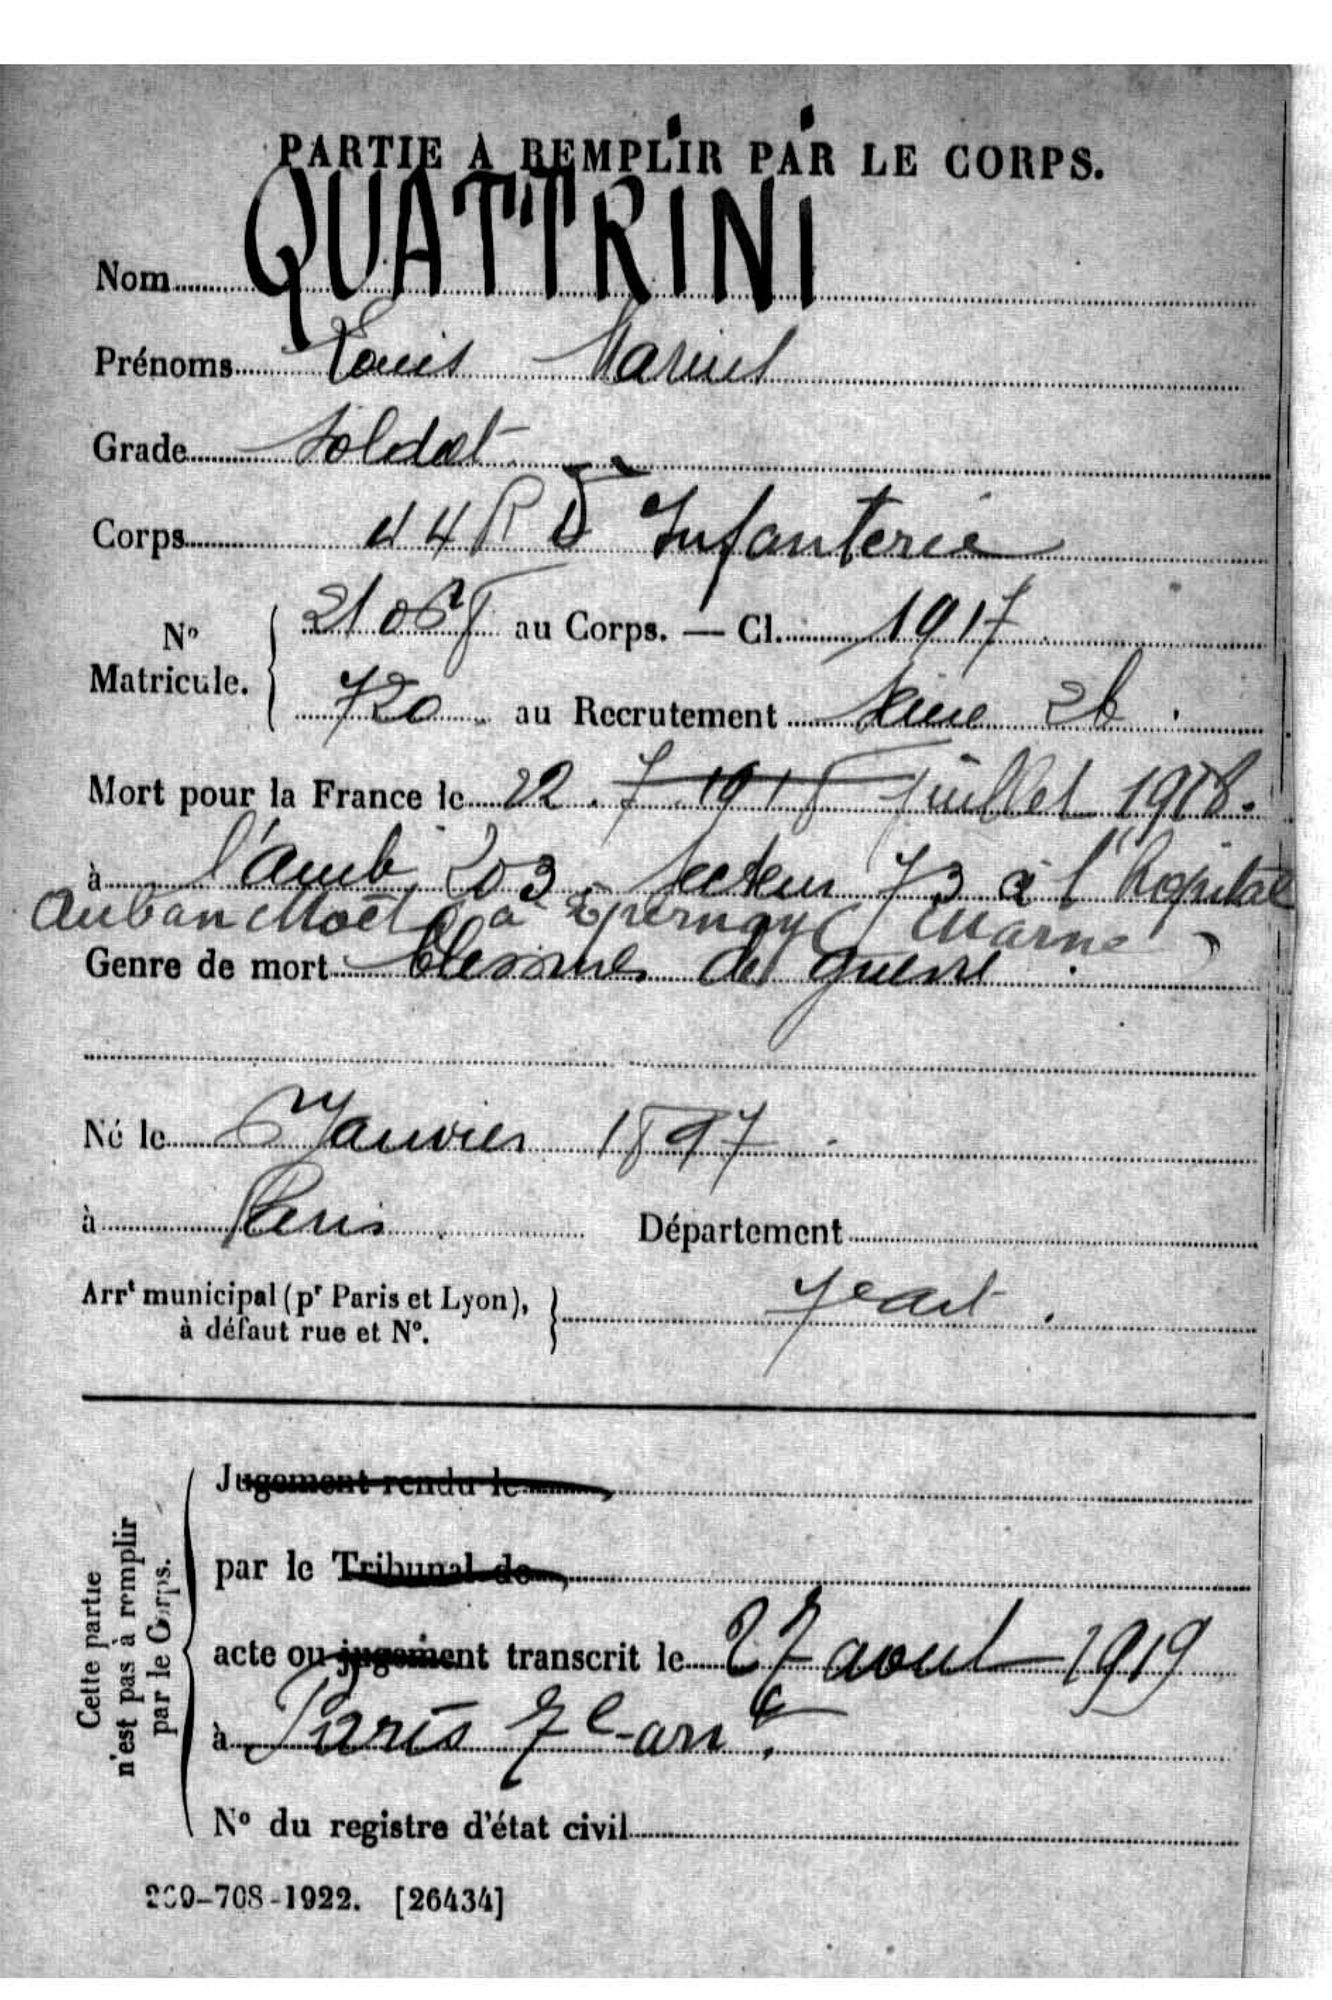 PARTIE A REMPLIR PAR LE CORPS.
Nom QUATTRINI
Prénoms Louis Marius
Grade Soldat
Corps 44 R D' Infanterie
N° Matricule. au Corps. — Cl. 1917
720 au Recrutement Seine 2b.
Mort pour la France le 22. 7 1918 Juillet 1918.
à l'amb. 203 Secteur 73 à l'hôpital
Auban Moët à Epernay (Marne)
Genre de mort blessures de guerre.
Né le Janvier 1897
à Paris Département
Arrt municipal (pr Paris et Lyon), 7e art.
à défaut rue et N°.
Cette partie
n'est pas à remplir
par le Corps.
Jugement rendu le
par le Tribunal de
acte ou jugement transcrit le 27 aout 1919
à Paris 7e arrt.
N° du registre d'état civil
-708-1922. [26434]